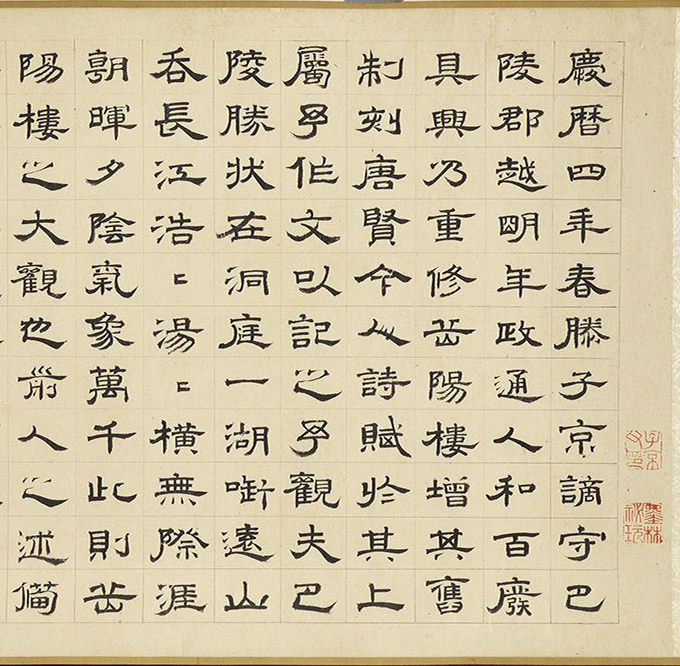 慶曆四年春滕子京謫守巴
陵郡越明年政通人和百廢
具興乃重修岳陽樓增其舊
制刻唐賢今人詩賦於其上
屬予作文以記之予觀夫巴
陵勝狀在洞庭一湖啣遠山
吞長江浩〻湯〻橫無際涯
朝暉夕陰氣象萬千此則岳
陽樓之大觀也前人之述備
子京父印
墨林祕玩